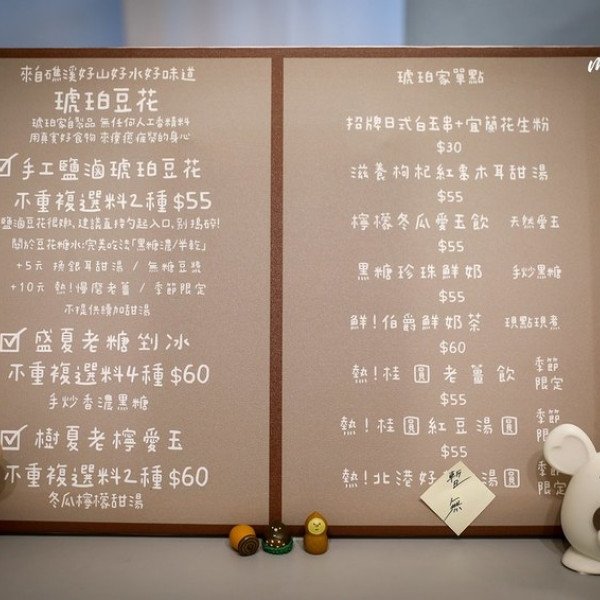 來自礁溪好山好水好味道
琥珀豆花
琥珀家自製品 無任何人工香精料
用真實好食物 來療癒疲勞的身心
手工鹽滷琥珀豆花
不重複選料2種 $55
鹽滷豆花很嫩，建議直接勺起入口，別搗碎！
關於豆花糖水：完美吃法「黑糖濃/半乾」
+5元 換銀耳甜湯 / 無糖豆漿
+10元 熱！慢磨老薑 / 季節限定
不提供續加甜湯
盛夏老糖剉冰
不重複選料4種 $60
手炒香濃黑糖
樹夏老檸愛玉
不重複選料2種 $60
冬瓜檸檬甜湯
琥珀家單點
招牌日式白玉串+宜蘭花生粉
$30
滋養枸杞紅棗木耳甜湯
$55
檸檬冬瓜愛玉飲 天然愛玉
$55
黑糖珍珠鮮奶 手炒黑糖
$55
鮮！伯爵鮮奶茶 現點現煮
$60
熱！桂圓老薑飲 季節限定
$55
熱！桂圓紅豆湯圓 季節
$55
熱！北港好 湯圓 季節限定
暫無